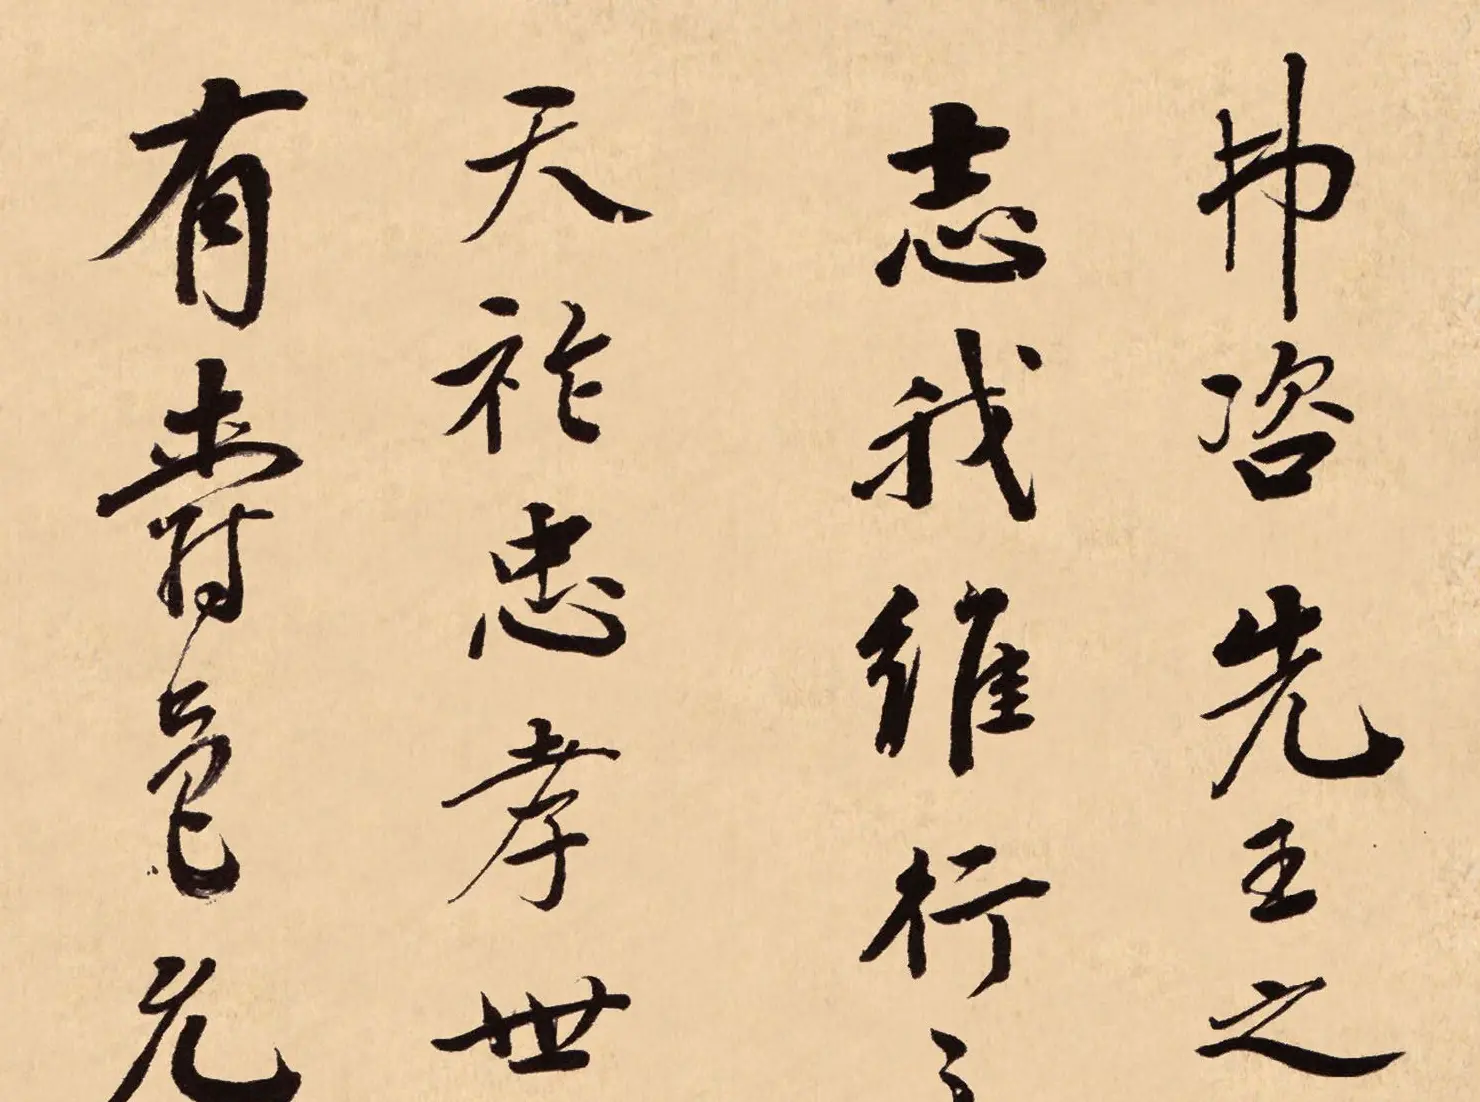 弗咨先王之
志我維行
天祚忠孝世
有壽